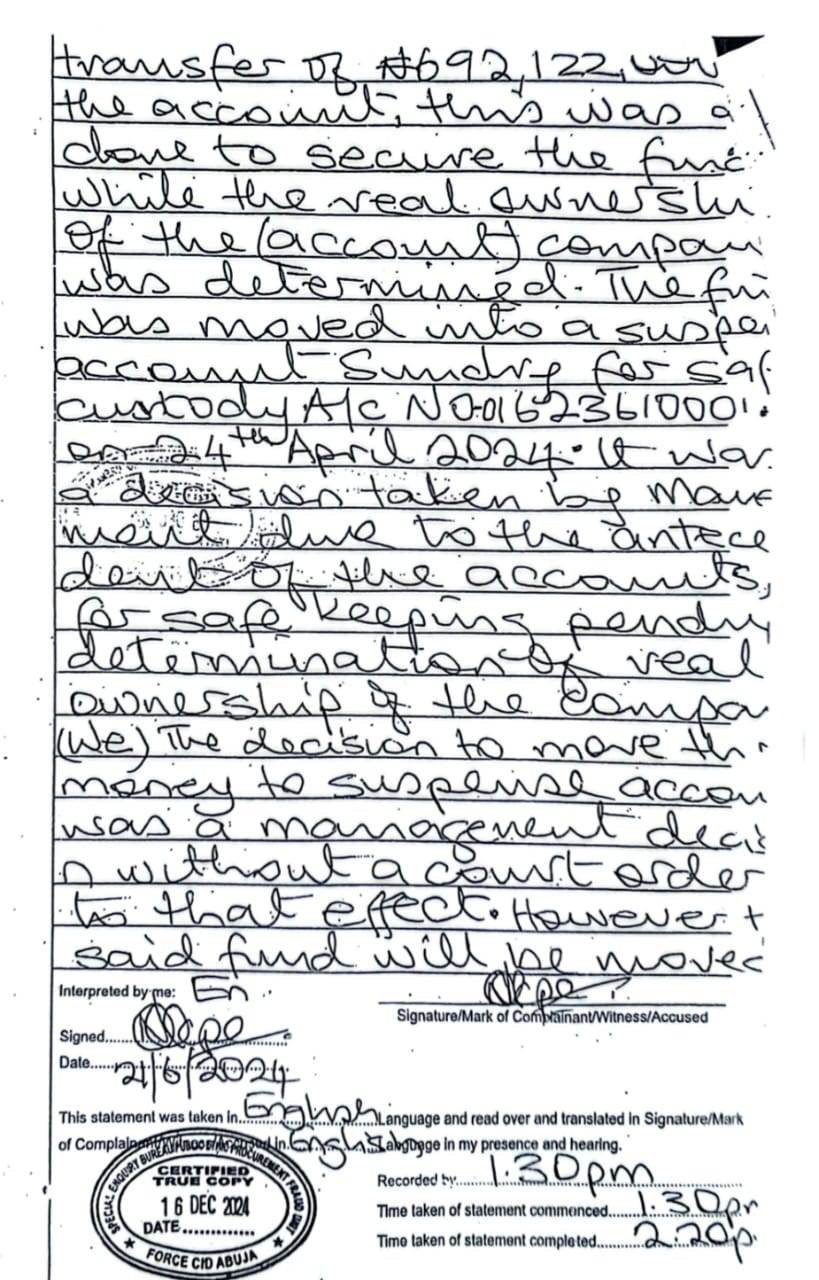 transfer of ₦692,122,
the account, this was a
done to secure the func
while the real ownershi
of the (account) compan
was determined. The fun
was moved into a suspen
account Sundry for saf
custody A/c NO-0162361000
on 24th April 2024. It was
a decision taken by Mane
ment due to the antece
dent of the accounts,
for safe keeping pendin
determination of real
ownership of the Compa
(We) The decision to move th
money to suspense accou
was a management decis
n without a court order
to that effect. However t
said fund will be moved
Interpreted by me: En
Signature/Mark of Complainant/Witness/Accused
Signed
Date 21/6/2024
This statement was taken in English Language and read over and translated in Signature/Mark
of Complainant/Witness/Accused in English Language in my presence and hearing.
SPECIAL ENQUIRY BUREAU PROCUREMENT FRAUD UNIT
CERTIFIED
TRUE COPY
16 DEC 2024
DATE
FORCE CID ABUJA
Recorded by 1.30pm
Time taken of statement commenced 1.30pm
Time taken of statement completed 2.20p